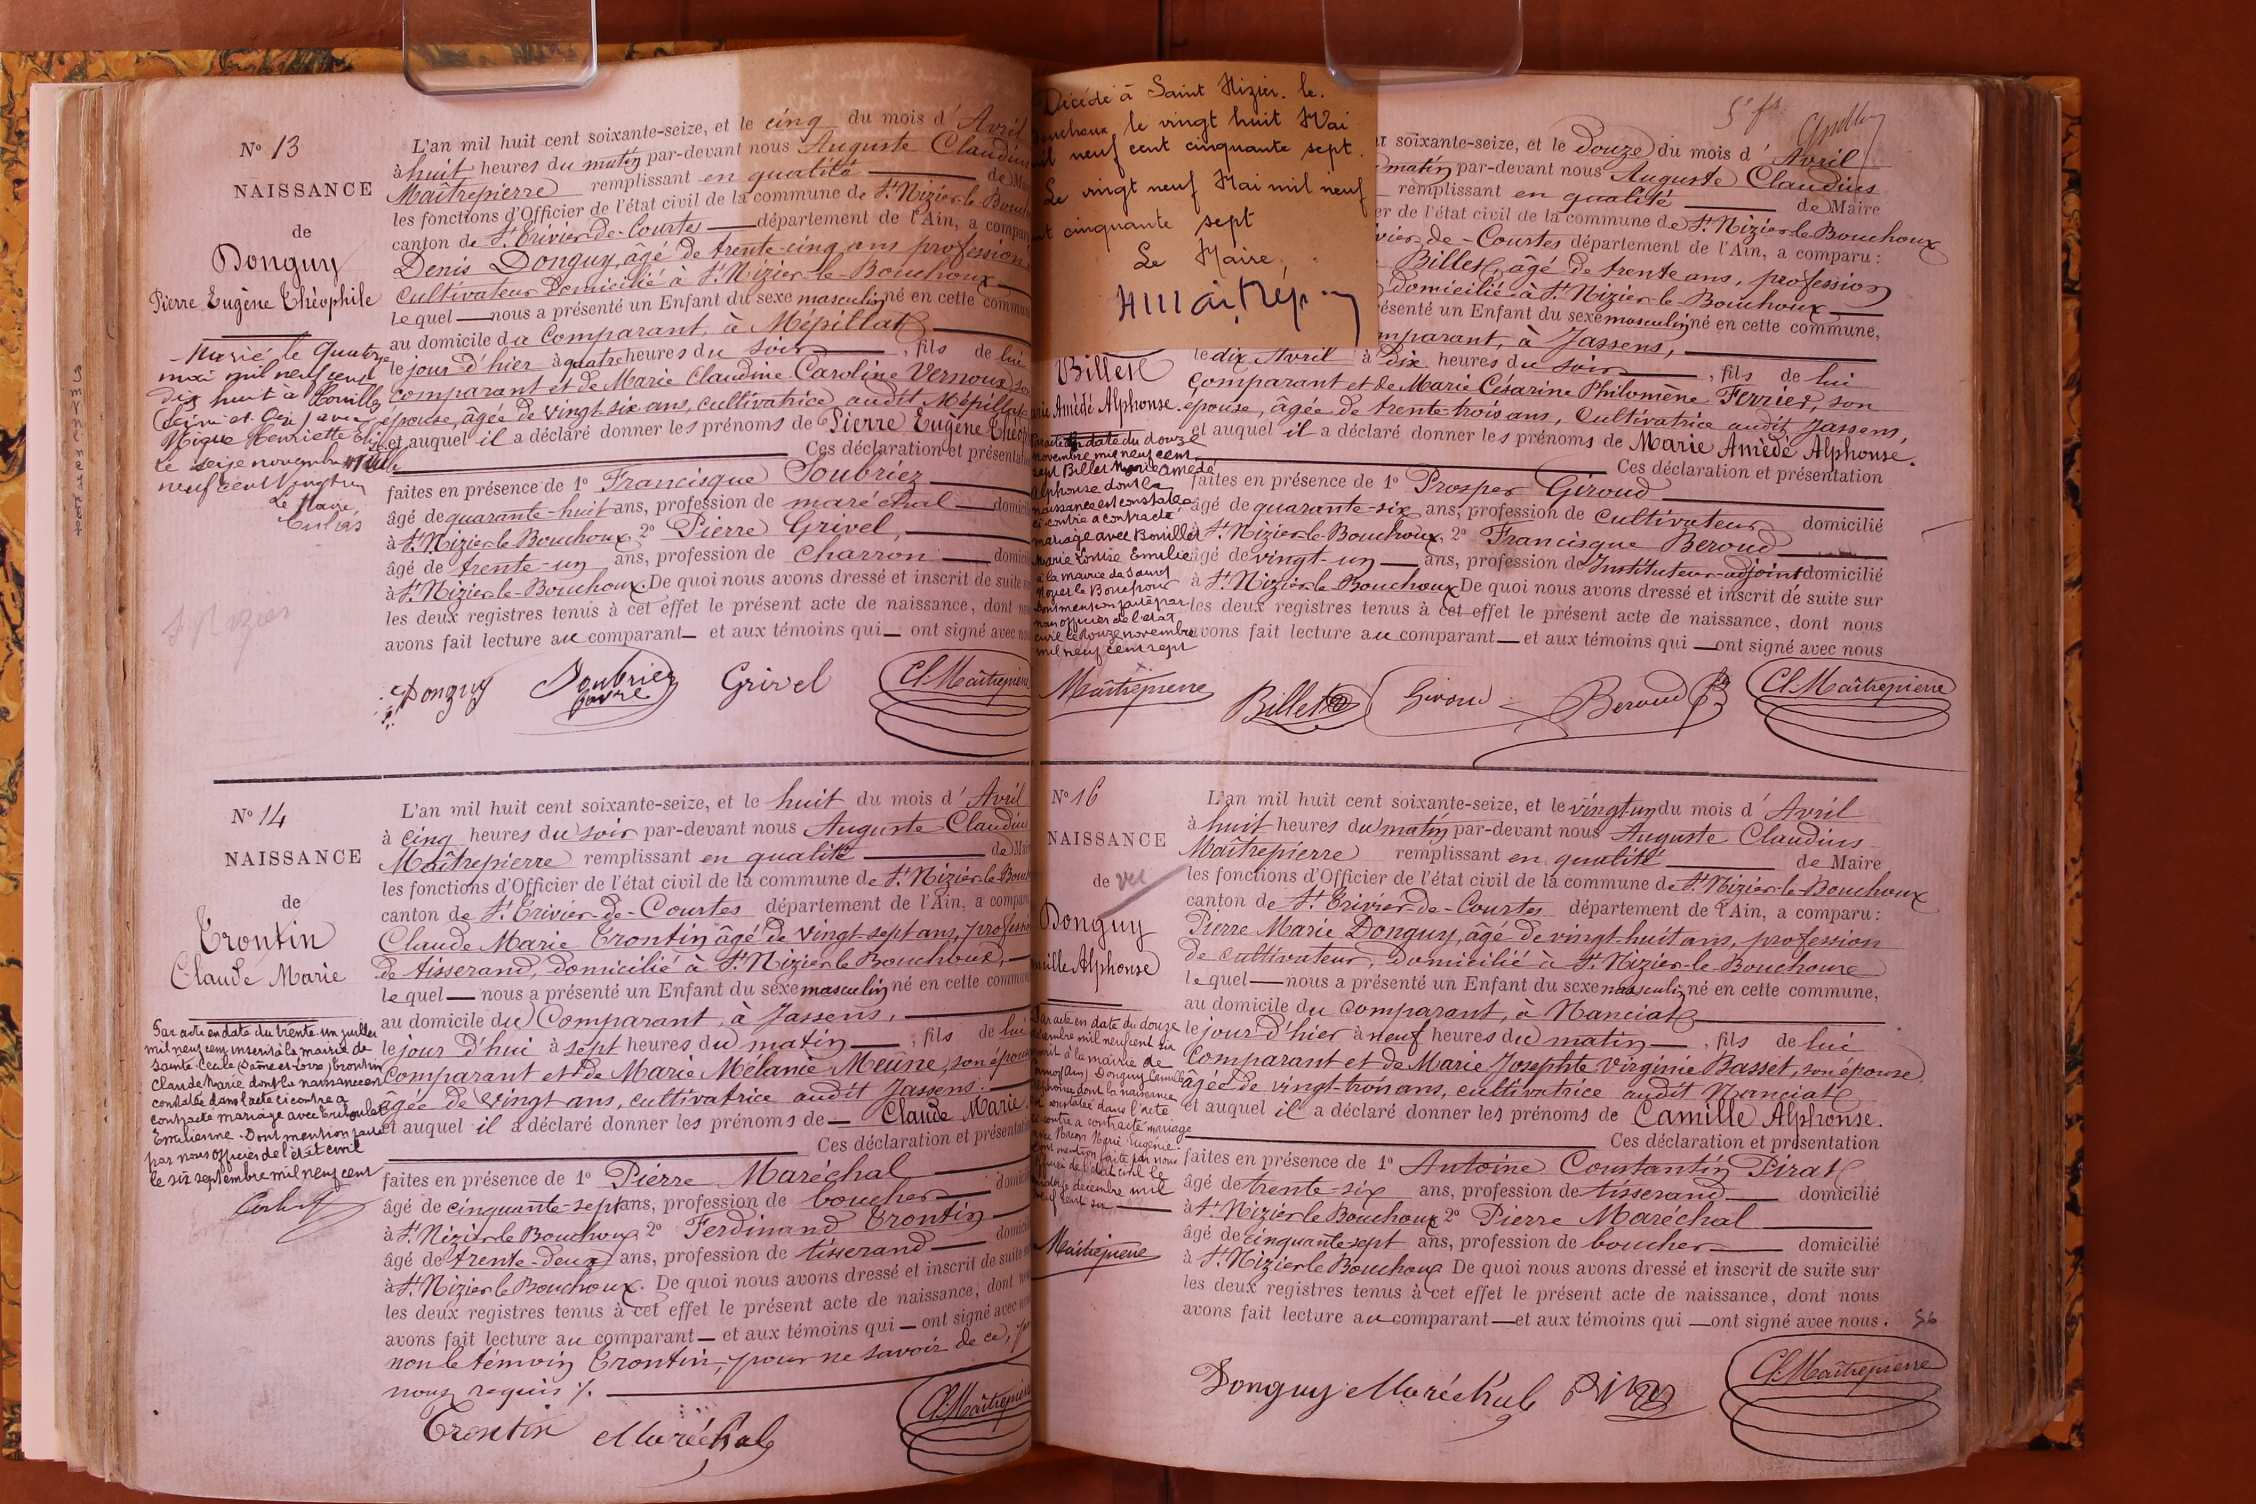 N° 13
NAISSANCE
de
Donguy
Pierre Eugène Théophile
Marié le quatre
mai mil neuf cent
dix huit à
avec
Henriette
Le seize novembre mil
neuf cent vingt
Le Maire,
L'an mil huit cent soixante-seize, et le cinq du mois d'Avril
à huit heures du matin par-devant nous Auguste Claudius
Maîtrepierre remplissant en qualité de
les fonctions d'Officier de l'état civil de la commune de St Nizier-le-
canton de St Trivier-de-Courtes département de l'Ain, a
Denis Donguy, âgé de trente-cinq ans profession
cultivateur domicilié à St Nizier-le-Bouchoux
Lequel nous a présenté un Enfant du sexe masculin né en cette
au domicile du Comparant, à Mépillat
le jour d'hier à quatre heures du soir, fils de lui
Comparant et de Marie Claudine Caroline Vernoux, son
épouse, âgée de vingt-six ans, cultivatrice audit Mépillat
et auquel il a déclaré donner les prénoms de Pierre Eugène
Ces déclaration et
faites en présence de 1° Francisque Soubriez
âgé de quarante-huit ans, profession de maréchal
à St Nizier-le-Bouchoux 2° Pierre Grivel,
âgé de trente-un ans, profession de Charron
à St Nizier-le-Bouchoux. De quoi nous avons dressé et inscrit de suite
les deux registres tenus à cet effet le présent acte de naissance, dont
avons fait lecture au comparant et aux témoins qui ont signé avec
Donguy Soubriez Grivel Cl. Maîtrepierre
St Nizier
N° 14
NAISSANCE
de
Trontin
Claude Marie
Par acte en date du trente un juillet
mil neuf cent inscrit à la mairie de
Sainte Cécile (Saône-et-Loire) Trontin
Claude Marie dont la naissance est
constatée dans l'acte ci contre a
contracté mariage avec
Dont mention faite
par nous officier de l'état civil
le six septembre mil neuf cent
L'an mil huit cent soixante-seize, et le huit du mois d'Avril
à cinq heures du soir par-devant nous Auguste Claudius
Maîtrepierre remplissant en qualité de
les fonctions d'Officier de l'état civil de la commune de St Nizier-le-
canton de St Trivier-de-Courtes département de l'Ain, a
Claude Marie Trontin, âgé de vingt-sept ans,
de tisserand, domicilié à St Nizier-le-Bouchoux,
Lequel nous a présenté un Enfant du sexe masculin né en cette
au domicile du Comparant, à Jassens,
le jour d'hui à sept heures du matin, fils de lui
Comparant et de Marie Mélanie Meune, son
âgée de vingt ans, cultivatrice audit Jassens.
et auquel il a déclaré donner les prénoms de Claude Marie.
Ces déclaration et
faites en présence de 1° Pierre Maréchal
âgé de cinquante-sept ans, profession de boucher
à St Nizier-le-Bouchoux 2° Ferdinand Trontin
âgé de trente-deux ans, profession de tisserand
à St Nizier-le-Bouchoux. De quoi nous avons dressé et inscrit de suite
les deux registres tenus à cet effet le présent acte de naissance, dont
avons fait lecture au comparant et aux témoins qui ont signé avec
non le témoin Trontin, pour ne savoir de ce,
nous requis ./.
Trontin Maréchal Cl. Maîtrepierre
Décédé à Saint Nizier. le.
le vingt huit Mai
neuf cent cinquante sept.
Le vingt neuf Mai mil neuf
cinquante sept
Le Maire,
soixante-seize, et le douze du mois d'Avril
matin par-devant nous Auguste Claudius
remplissant en qualité de Maire
de l'état civil de la commune de St Nizier-le-Bouchoux
de-Courtes département de l'Ain, a comparu :
Billet, âgé de trente ans, profession
domicilié à St Nizier-le-Bouchoux
un Enfant du sexe masculin né en cette commune,
à Jassens,
le dix Avril à dix heures du soir, fils de lui
Comparant et de Marie Césarine Philomène Ferrier, son
épouse, âgée de trente-trois ans, Cultivatrice audit Jassens,
et auquel il a déclaré donner les prénoms de Marie Amédé Alphonse.
Ces déclaration et présentation
faites en présence de 1° Prosper Giroud
âgé de quarante-six ans, profession de cultivateur domicilié
à St Nizier-le-Bouchoux, 2° Francisque Beroud
âgé de vingt-un ans, profession d'Instituteur-adjoint domicilié
à St Nizier-le-Bouchoux De quoi nous avons dressé et inscrit de suite sur
les deux registres tenus à cet effet le présent acte de naissance, dont nous
avons fait lecture au comparant et aux témoins qui ont signé avec nous
Billet
Amédé Alphonse.
en date du douze
novembre mil neuf cent
sept Billet Marie Amédé
Alphonse dont la
naissance est constatée
ci contre a contracté
mariage avec Bouillet
Marie Louise Emélie
à la mairie de
Dont mention faite par
nous officier de l'état
civil le douze novembre
mil neuf cent sept
Maîtrepierre Billet Giroud Beroud Cl. Maîtrepierre
N° 16
NAISSANCE
de
Donguy
Alphonse
Par acte en date du douze
décembre mil neuf cent six
à la mairie de
(Ain) Donguy Camille
Alphonse dont la naissance
est constatée dans l'acte
ci contre a contracté mariage
Marie Eugénie.
Dont mention faite par nous
officier de l'état civil le
décembre mil
neuf cent six.
Maîtrepierre
L'an mil huit cent soixante-seize, et le vingt-un du mois d'Avril
à huit heures du matin par-devant nous Auguste Claudius
Maîtrepierre remplissant en qualité de Maire
les fonctions d'Officier de l'état civil de la commune de St Nizier-le-Bouchoux
canton de St Trivier-de-Courtes département de l'Ain, a comparu :
Pierre Marie Donguy, âgé de vingt-huit ans, profession
de cultivateur, domicilié à St Nizier-le-Bouchoux
Lequel nous a présenté un Enfant du sexe masculin né en cette commune,
au domicile du comparant, à Nanciat
le jour d'hier à neuf heures du matin, fils de lui
Comparant et de Marie Josephte Virginie Basset, son épouse
âgée de vingt-trois ans, cultivatrice audit Nanciat
et auquel il a déclaré donner les prénoms de Camille Alphonse.
Ces déclaration et présentation
faites en présence de 1° Antoine Constantin Pirat
âgé de trente-six ans, profession de tisserand domicilié
à St Nizier-le-Bouchoux 2° Pierre Maréchal
âgé de cinquante-sept ans, profession de boucher domicilié
à St Nizier-le-Bouchoux De quoi nous avons dressé et inscrit de suite sur
les deux registres tenus à cet effet le présent acte de naissance, dont nous
avons fait lecture au comparant et aux témoins qui ont signé avec nous.
56
Donguy Maréchal Cl. Maîtrepierre